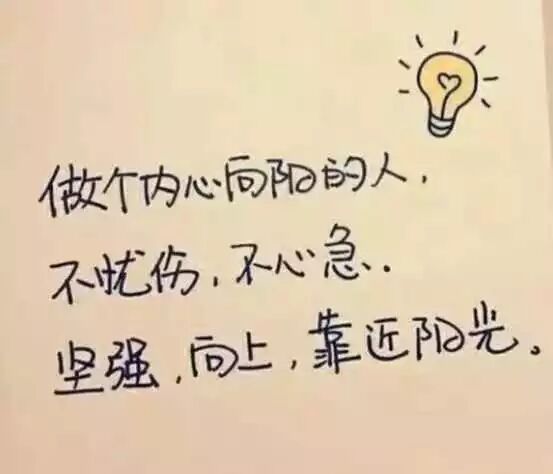 做个内心向阳的人.
不忧伤,不心急.
坚强,向上,靠近阳光。